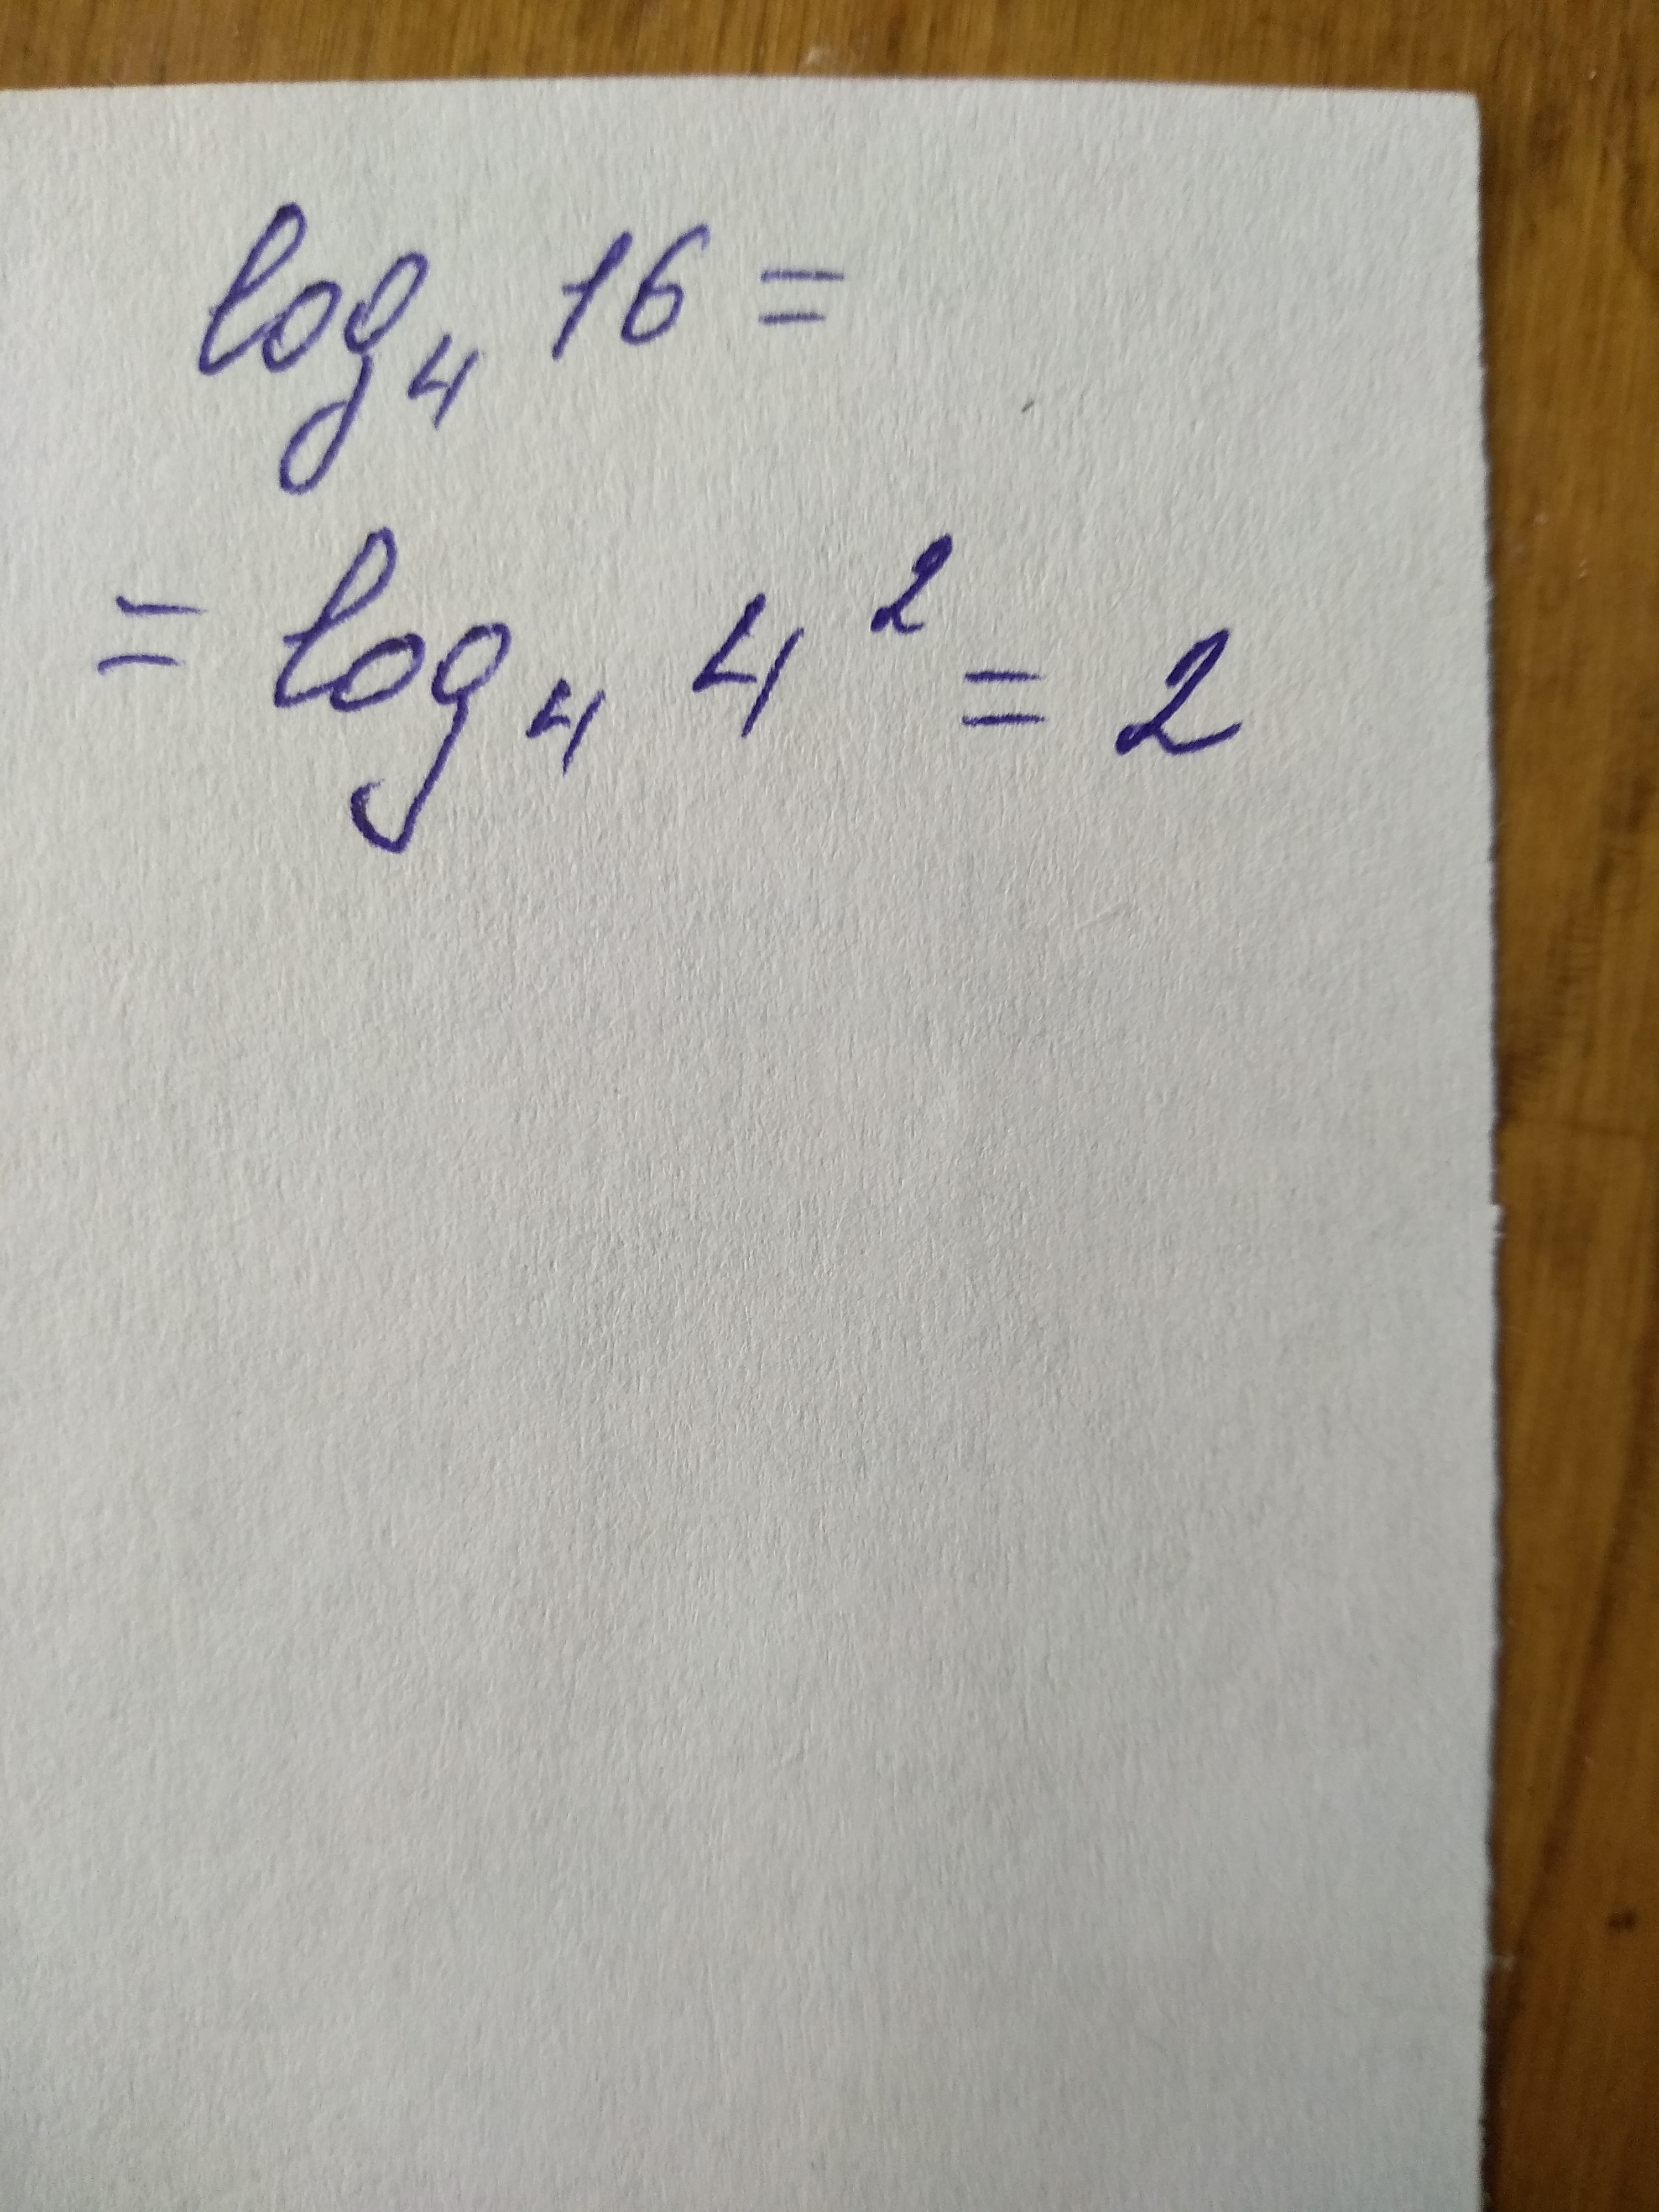 log₄ 16 =
= log₄ 4² = 2